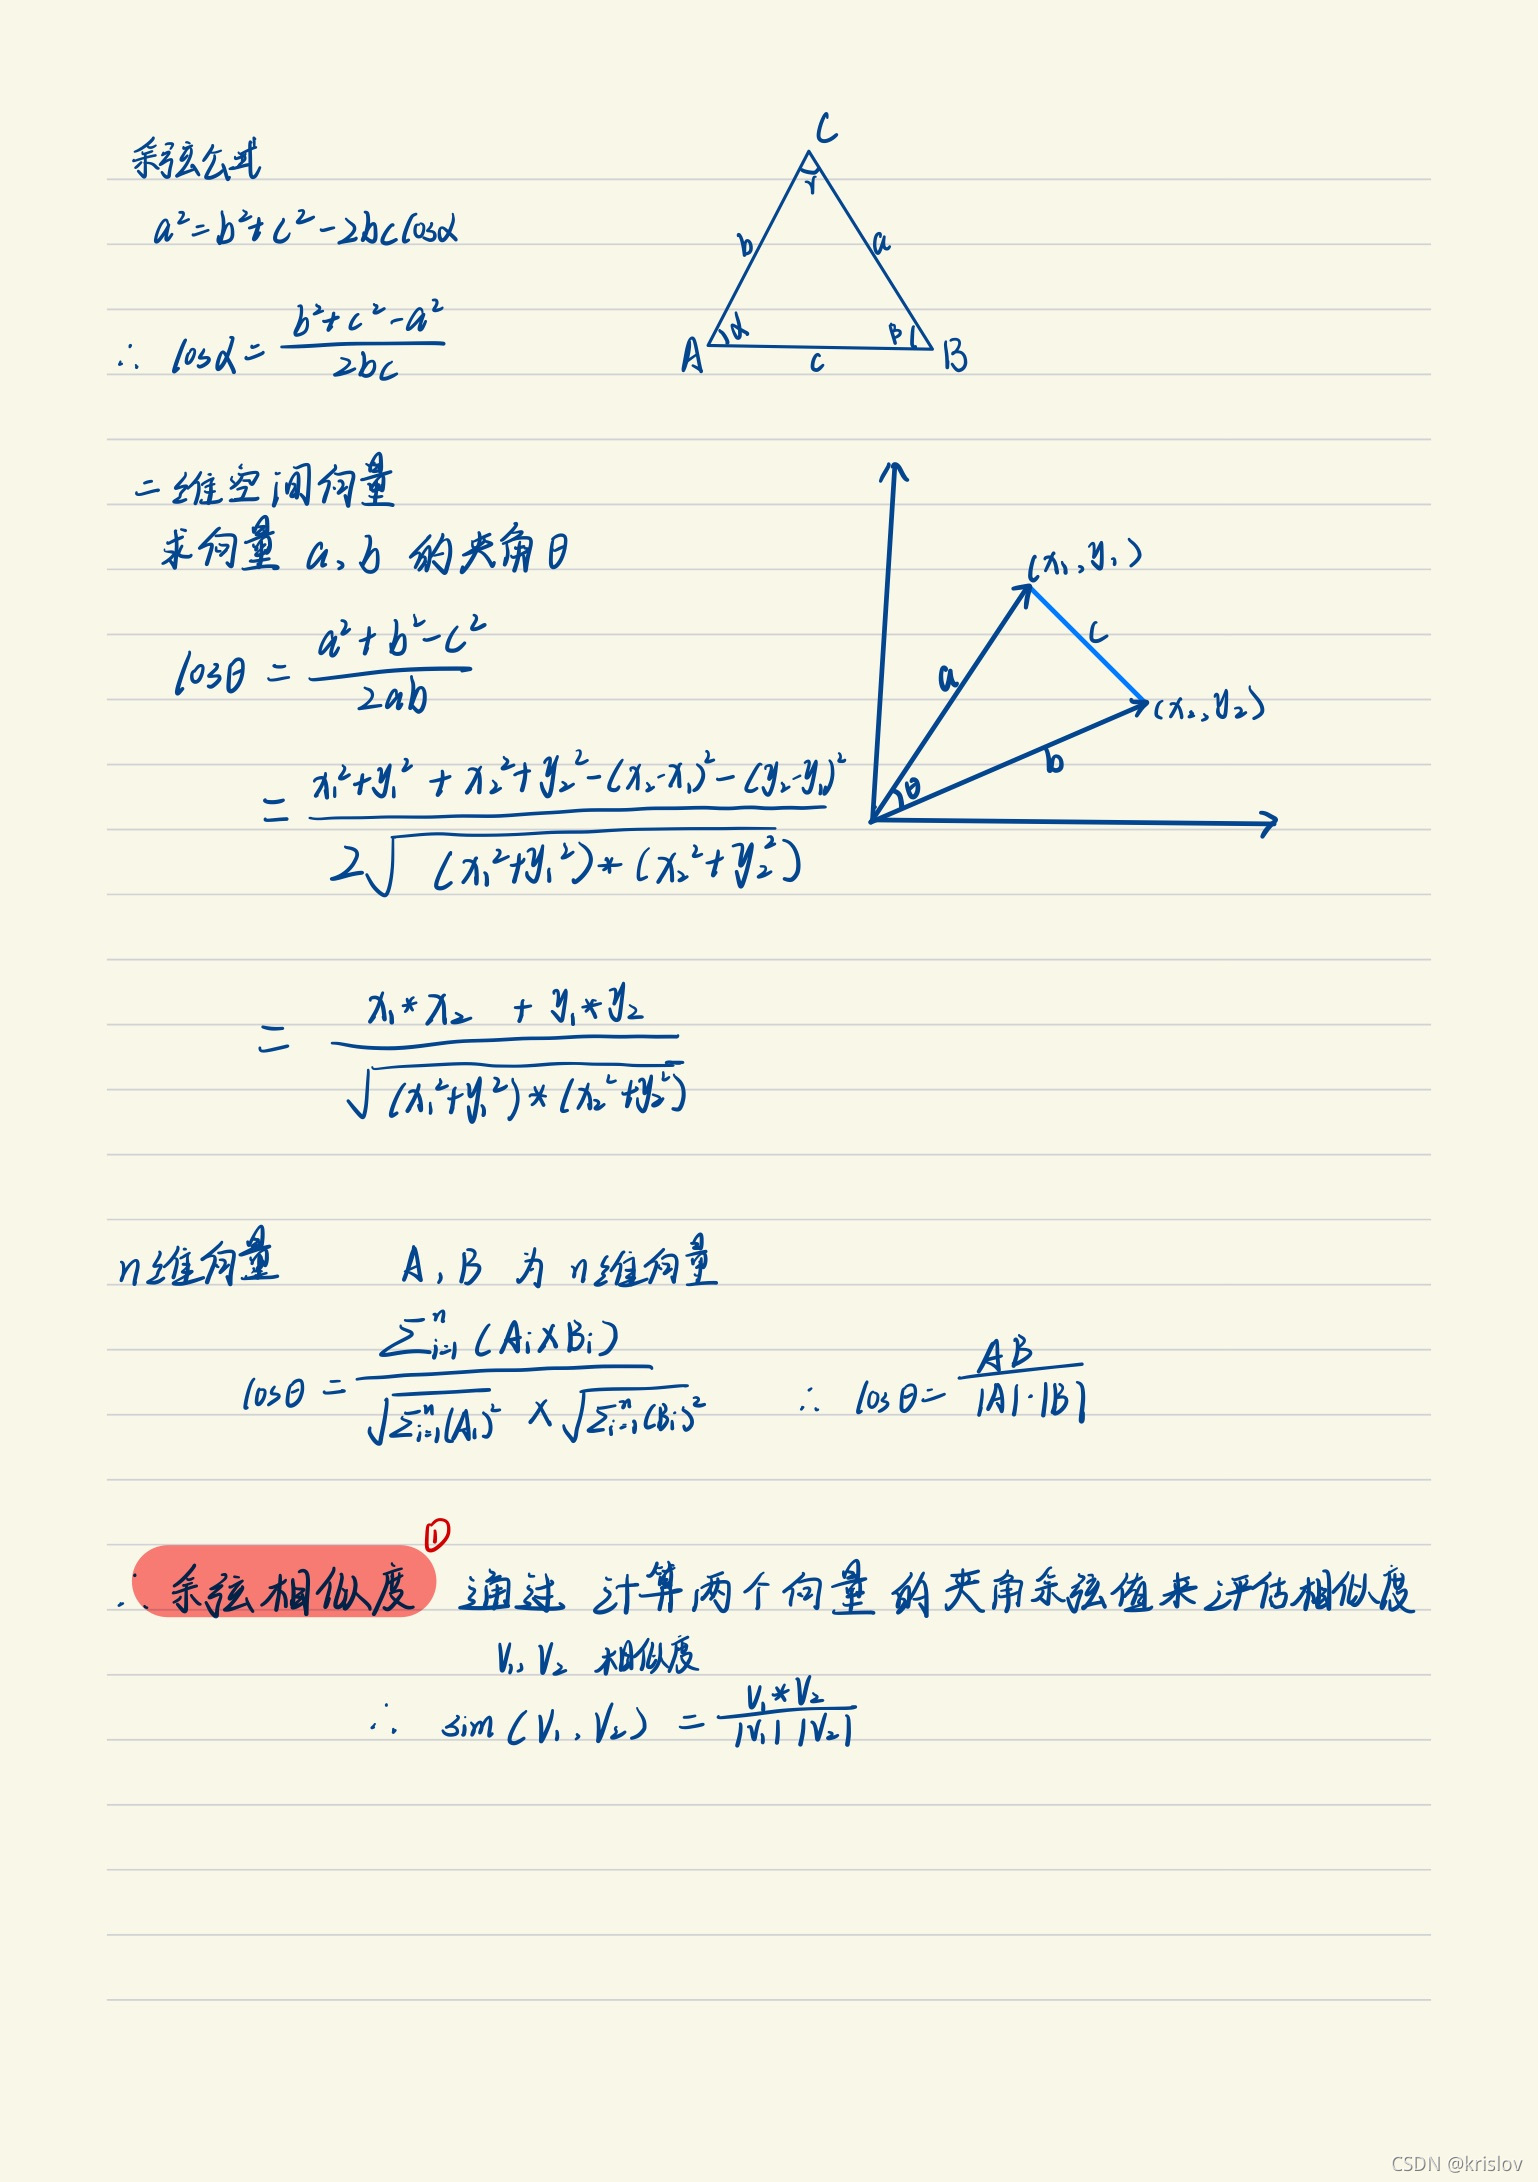 余弦公式
a²=b²+c²-2bc cosα
∴ cosα= (b²+c²-a²)/(2bc)
C
γ
b
a
α
β
A
c
B
二维空间向量
求向量 a、b 的夹角θ
cosθ = (a²+b²-c²)/(2ab)
= (x₁²+y₁² + x₂²+y₂²-(x₂-x₁)²-(y₂-y₁)²)/(2√((x₁²+y₁²)*(x₂²+y₂²)))
= (x₁*x₂ + y₁*y₂)/(√((x₁²+y₁²)*(x₂²+y₂²)))
(x₁,y₁)
c
a
(x₂,y₂)
b
θ
n维向量 A,B 为 n维向量
cosθ = (∑ⁿᵢ₌₁(Aᵢ×Bᵢ))/(√(∑ⁿᵢ₌₁(Aᵢ)²) × √(∑ⁿᵢ₌₁(Bᵢ)²)) ∴ cosθ= AB/(|A|·|B|)
①
∴ 余弦相似度 通过 计算两个向量的夹角余弦值来评估相似度
V₁, V₂ 相似度
∴ sim(V₁,V₂) = (V₁*V₂)/(|V₁| |V₂|)
CSDN @krislov